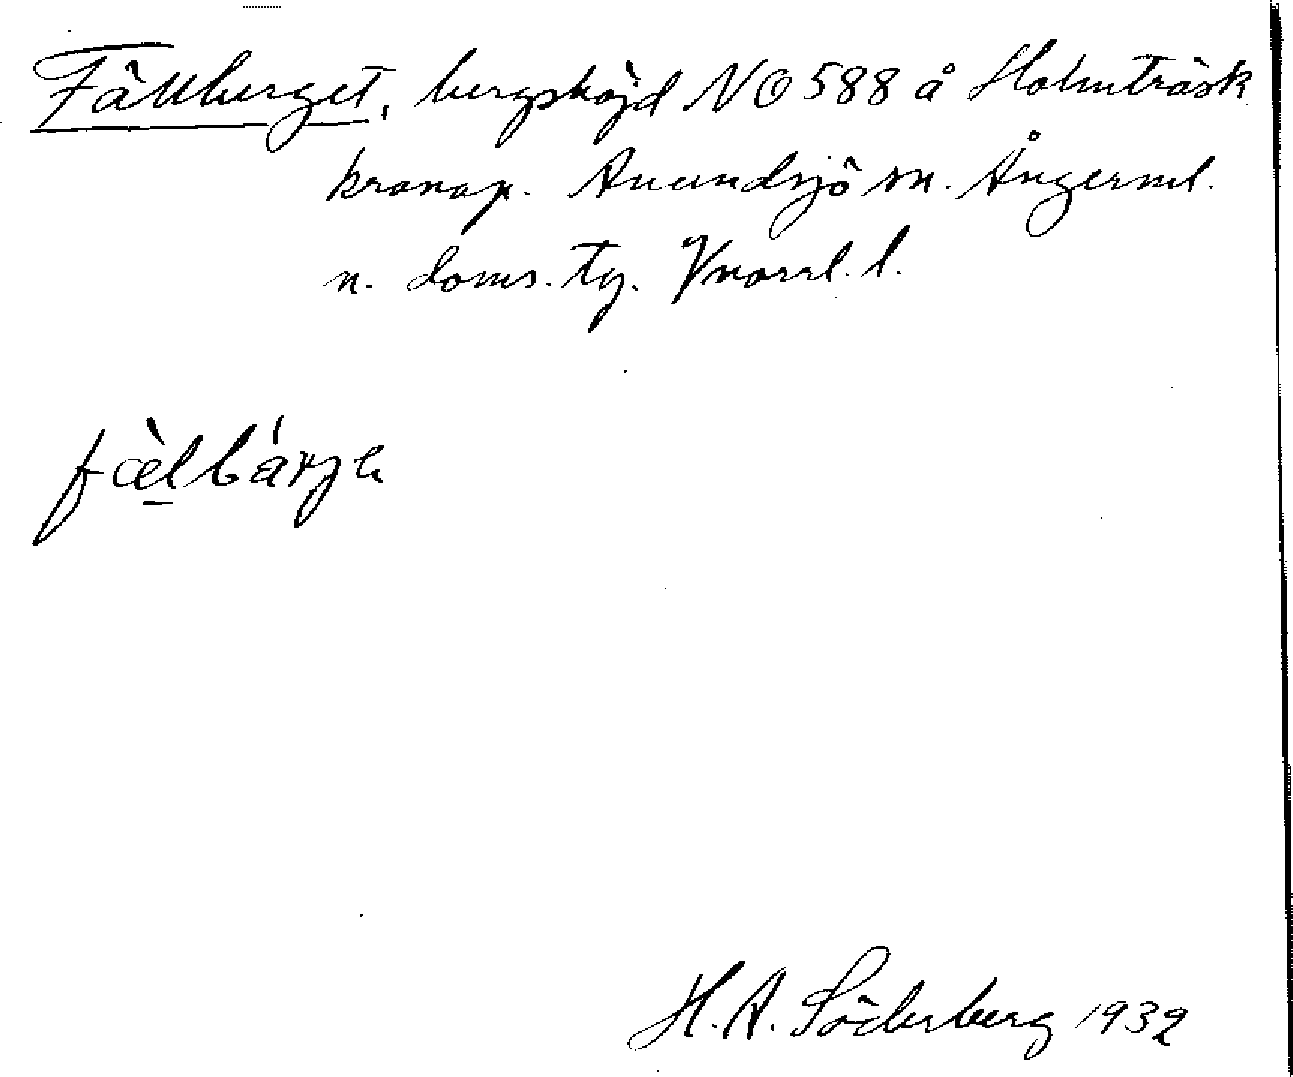 Fällberget, bergshöjd NO 588 å Holmträsk
kronop. Anundsjö sn. Ångerml.
n. doms. tg. Vnorrl. l.
fæ̀lbárje
H. A. Söderberg 1932